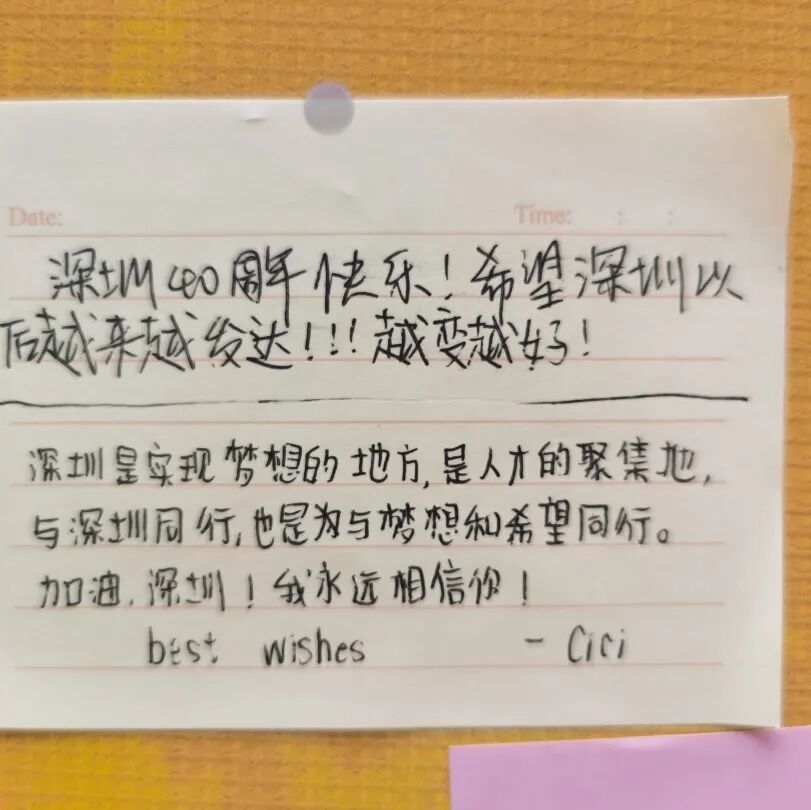 Date:
Time: : :
深圳40周年快乐！希望深圳以
后越来越发达！！！越变越好！
深圳是实现梦想的地方，是人才的聚集地，
与深圳同行，也是为与梦想和希望同行。
加油，深圳！我永远相信你！
best wishes - Cici